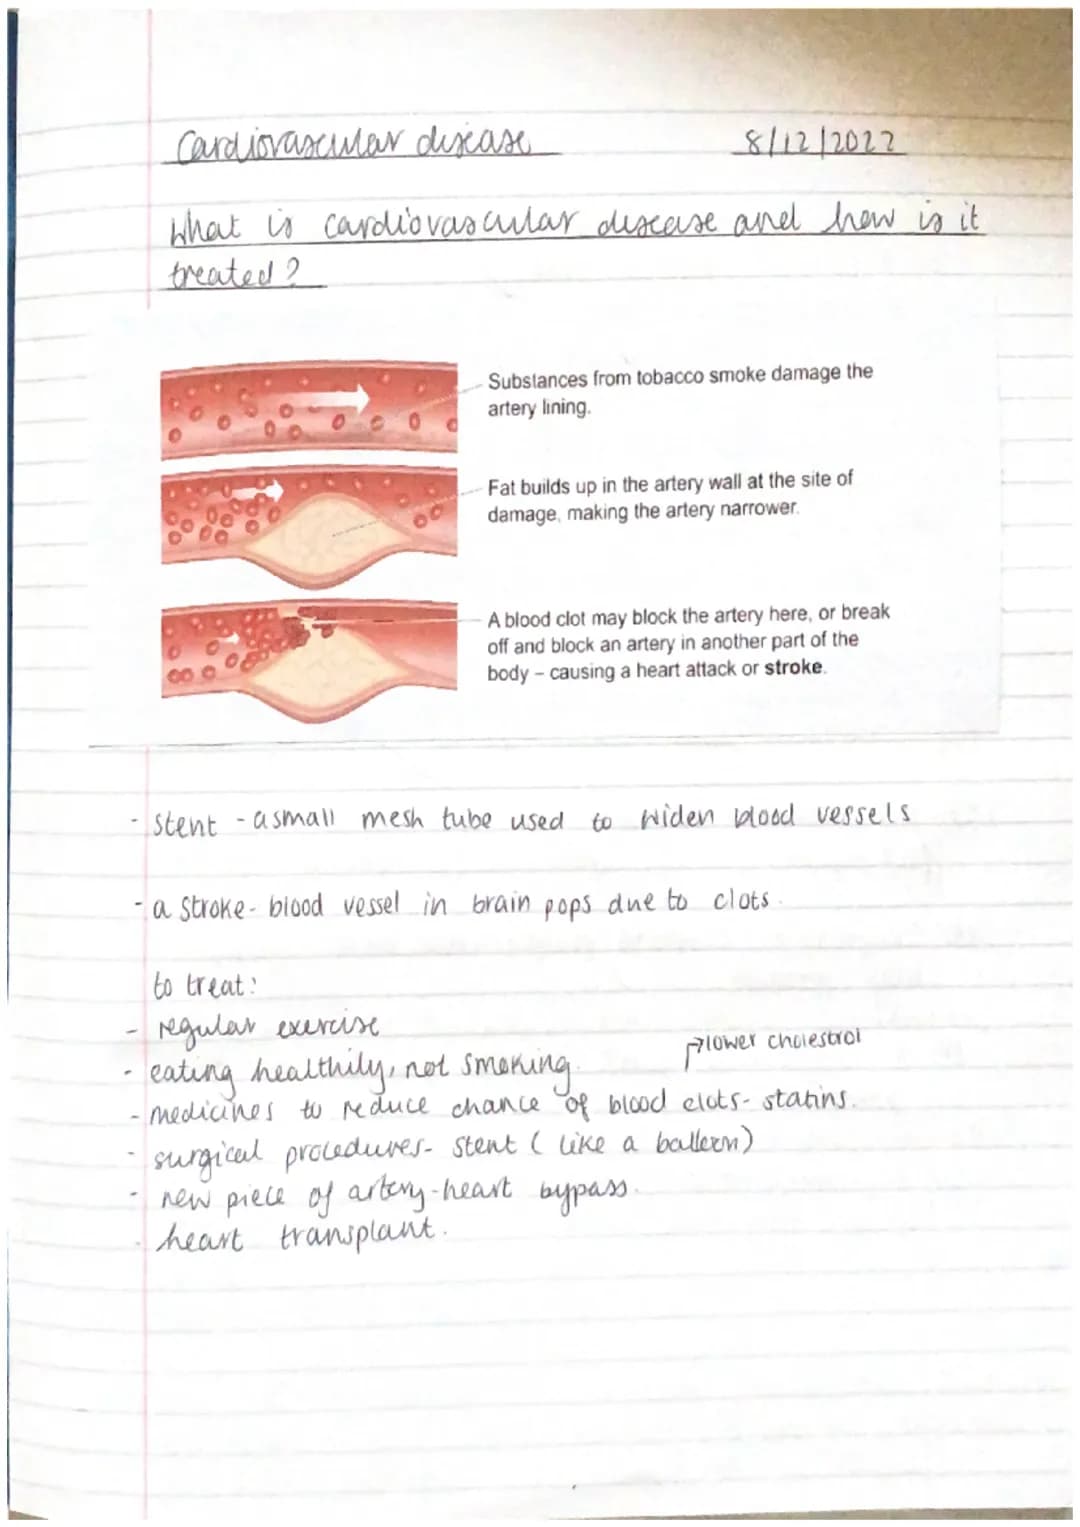 Cardiovascular disease 8/12/2022
What is cardiovascular disease and how is it
treated?
Substances from tobacco smoke damage the
artery lining.
Fat builds up in the artery wall at the site of
damage, making the artery narrower.
A blood clot may block the artery here, or break
off and block an artery in another part of the
body – causing a heart attack or stroke.
- stent - a small mesh tube used to widen blood vessels
- a stroke - blood vessel in brain pops due to clots.
to treat:
- regular exercise
- eating healthily, not smoking.
↱lower cholestrol
- medicines to reduce chance of blood clots - statins.
- surgical procedures - stent (like a balloon)
- new piece of artery - heart bypass.
- heart transplant.